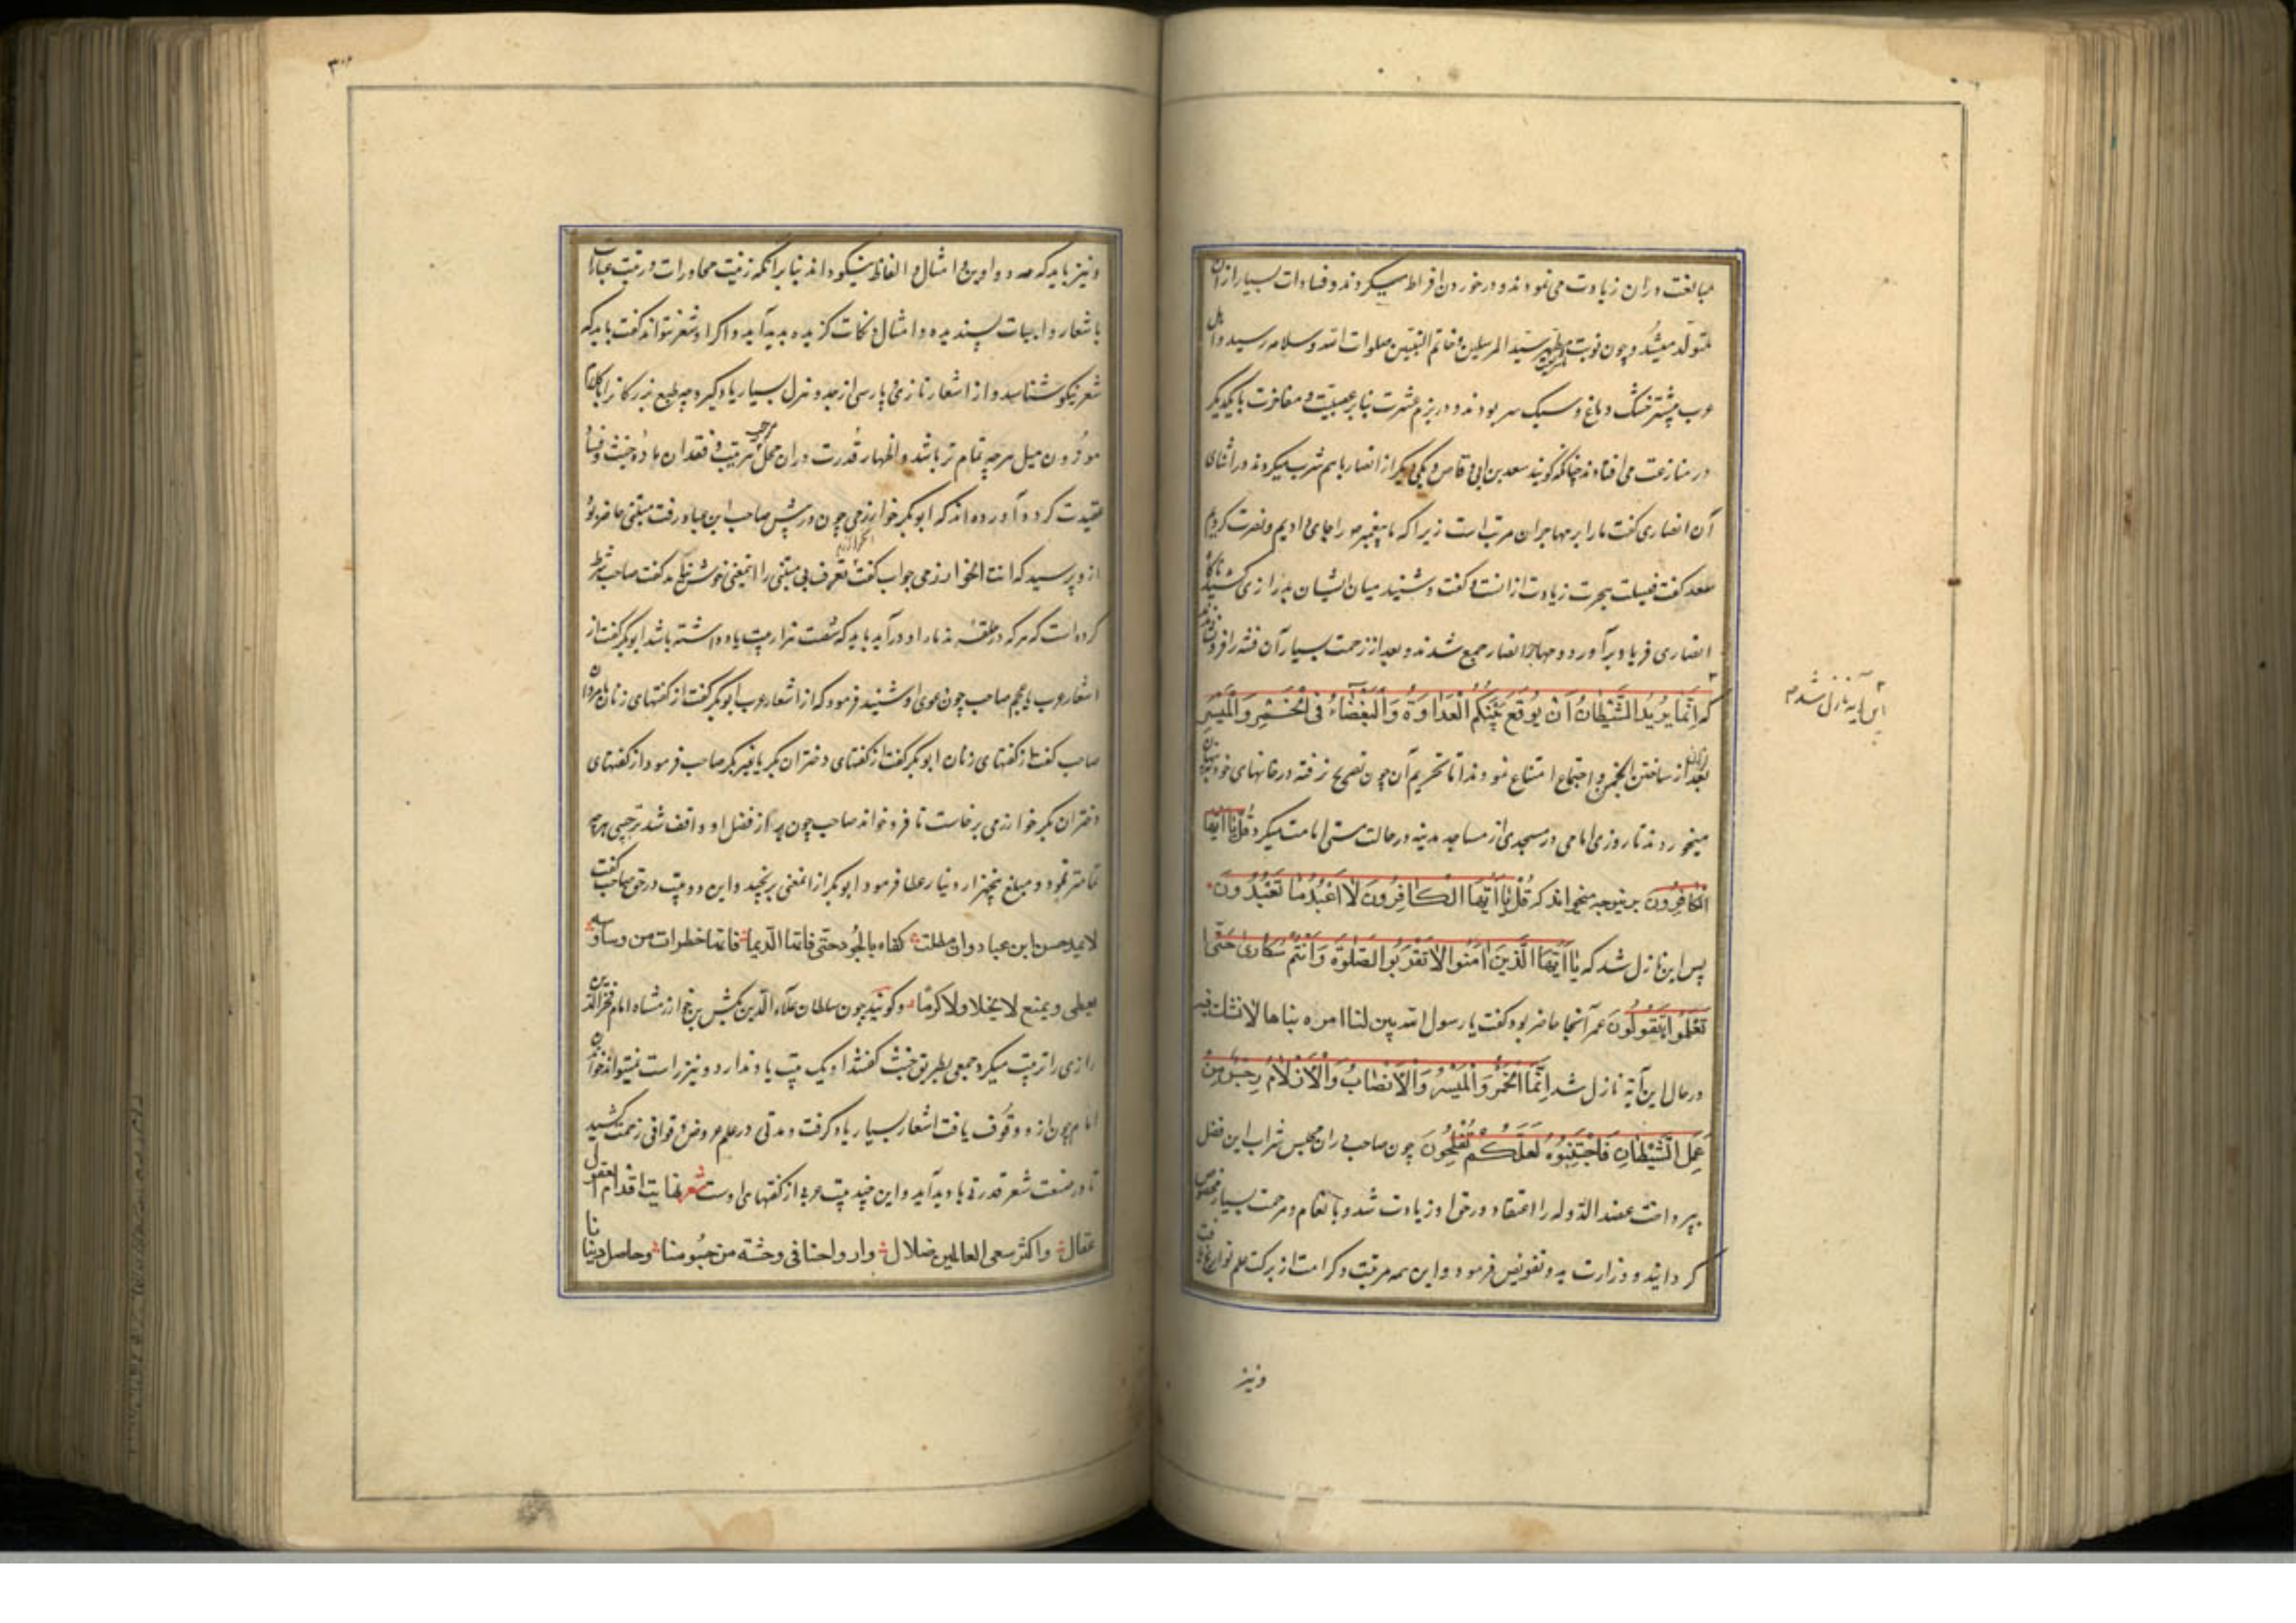 مبالغت دران زیادت می نمودند و در خوردن افراط میکردند و فسادات بسیار ازان
متولد میشد و چون نوبت سید المرسلین و خاتم النبیین صلوات الله و سلامه رسید و اهل
عرب بیشتر خشک دماغ و سبک سر بودند و در بزم عشرت بنابر عصبیت و مفاخرت با یکدیگر
در منازعت می افتادند چنانکه گویند سعد بن ابی وقاص و یکی دیگر از انصار باهم شرب میکردند در اثنای
آن انصاری گفت ما را بر مهاجران مرتبه است زیرا که ما پیغمبر را جای دادیم و نصرت کردیم
سعد گفت فضیلت هجرت زیادت ازانست و گفت و شنید میان ایشان بدرازی کشید ناگاه
انصاری فریاد برآورد و مهاجر و انصار جمع شدند و بعد از زحمت بسیار آن فتنه را فرو نشاندند
که انَّما یُریدُ الشَّیْطانُ اَنْ یُوقِعَ بَیْنَکُمُ الْعَداوَةَ وَالْبَغْضاءَ فی الْخَمْرِ وَالْمَیْسِرِ
این آیه نازل شد
بعد ازان از ساختن انجمن و اجتماع امتناع نمودند اما تحریم آن چون تصریح نرفته در خانهای خود
میخوردند تا روزی امامی در مسجدی از مساجد مدینه در حالت مستی امامت میکرد قُلْ یا اَیُّهَا
الْکافِرُونَ برینوجه میخواند که قُلْ یا اَیُّهَا الْکافِرُونَ لا اَعْبُدُ ما تَعْبُدُونَ
پس این نازل شد که یا اَیُّهَا الَّذینَ امَنُوا لا تَقْرَبُوا الصَّلوةَ وَاَنْتُمْ سُکاری حَتّی
تَعْلَمُوا ما تَقُولُونَ عمر آنجا حاضر بود گفت یا رسول الله بین لنا امره بیانا
در حال این آیة نازل شد اِنَّمَا الْخَمْرُ وَالْمَیْسِرُ وَالْاَنْصابُ وَالْاَزْلامُ رِجْسٌ مِنْ
عَمَلِ الشَّیْطانِ فَاجْتَنِبُوهُ لَعَلَّکُمْ تُفْلِحُونَ چون صاحب دران مجلس شراب این فصل
بپرداخت عضد الدوله را اعتقاد در حق او زیادت شد و بانعام و مرحمت بسیار مخصوص
گردانید و وزارت به و تفویض فرمود و این همه مرتبت و کرامت از برکت علم تواریخ یافت
و نیز
۳۰۶
و نیز باید که دواوین و امثال و الفاظ نیکو داند بنابرانکه زینت محاورات و زیب عبارات
باشعار و ابیات پسندیده و امثال و نکات گزیده پدید آید و اگر او شعر نتواند گفت باید که
شعر نیکو شناسد و از اشعار تازی و پارسی از جد و هزل بسیار یاد گیرد چه طبع بزرگان را بکلام
موزون میل هرچه تمام تر باشد و اظهار قدرت دران محل موجب تربیت و فقدان ماده خبث و فساد
عقیدت کرده آورده اند که ابوبکر خوارزمی چون در پیش صاحب ابن عباد رفت مبغضی حاضر بود
ازو پرسید که انت الخوارزمی جواب گفت تعرف بی مبغضی را اینمعنی خوش نیامد گفت صاحب شرط
کرده است که هر که در حلقه ندمار او درآید باید که شصت هزار بیت یاد داشته باشد ابوبکر گفت از
اشعار عرب یا عجم صاحب چون دعوی او شنید فرمود که از اشعار عرب ابوبکر گفت از گفتهای زنان یا مردان
صاحب گفت از گفتهای زنان ابوبکر گفت از گفتهای دختران بکر یا غیر بکر صاحب فرمود از گفتهای
دختران بکر خوارزمی برخاست تا فرو خواند صاحب چون بر از فضل او واقف شد ترحیبی هرچه
تمامتر نمود و مبلغ پنجهزار دینار عطا فرمود ابوبکر ازانمعنی برنجید و این دو بیت در حق صاحب گفت
لا یمدحن ابن عباد وان هطلت کفاه بالجود حتی فاقتا الدیما فانها خطرات من وساوسه
یعطی و یمنع لا بخلا ولا کرما و گویند چون سلطان علاء الدین تکش بن خوارزمشاه امام فخر الدین
رازی را تربیت میکرد جمعی بطریق خبث گفتند او یک بیت یاد ندارد و نیز راست نمیتواند خواند
امام چون ازو وقوف یافت اشعار بسیار یاد گرفت و مدتی در علم عروض و قوافی زحمت کشید
تا در صنعت شعر قدرتی یا دید آید و این چند بیت عربی از گفتهای اوست شعر نهایة اقدام العقول
عقال واکثر سعی العالمین ضلال وارواحنا فی وحشه من جسومنا وحاصل دنیانا